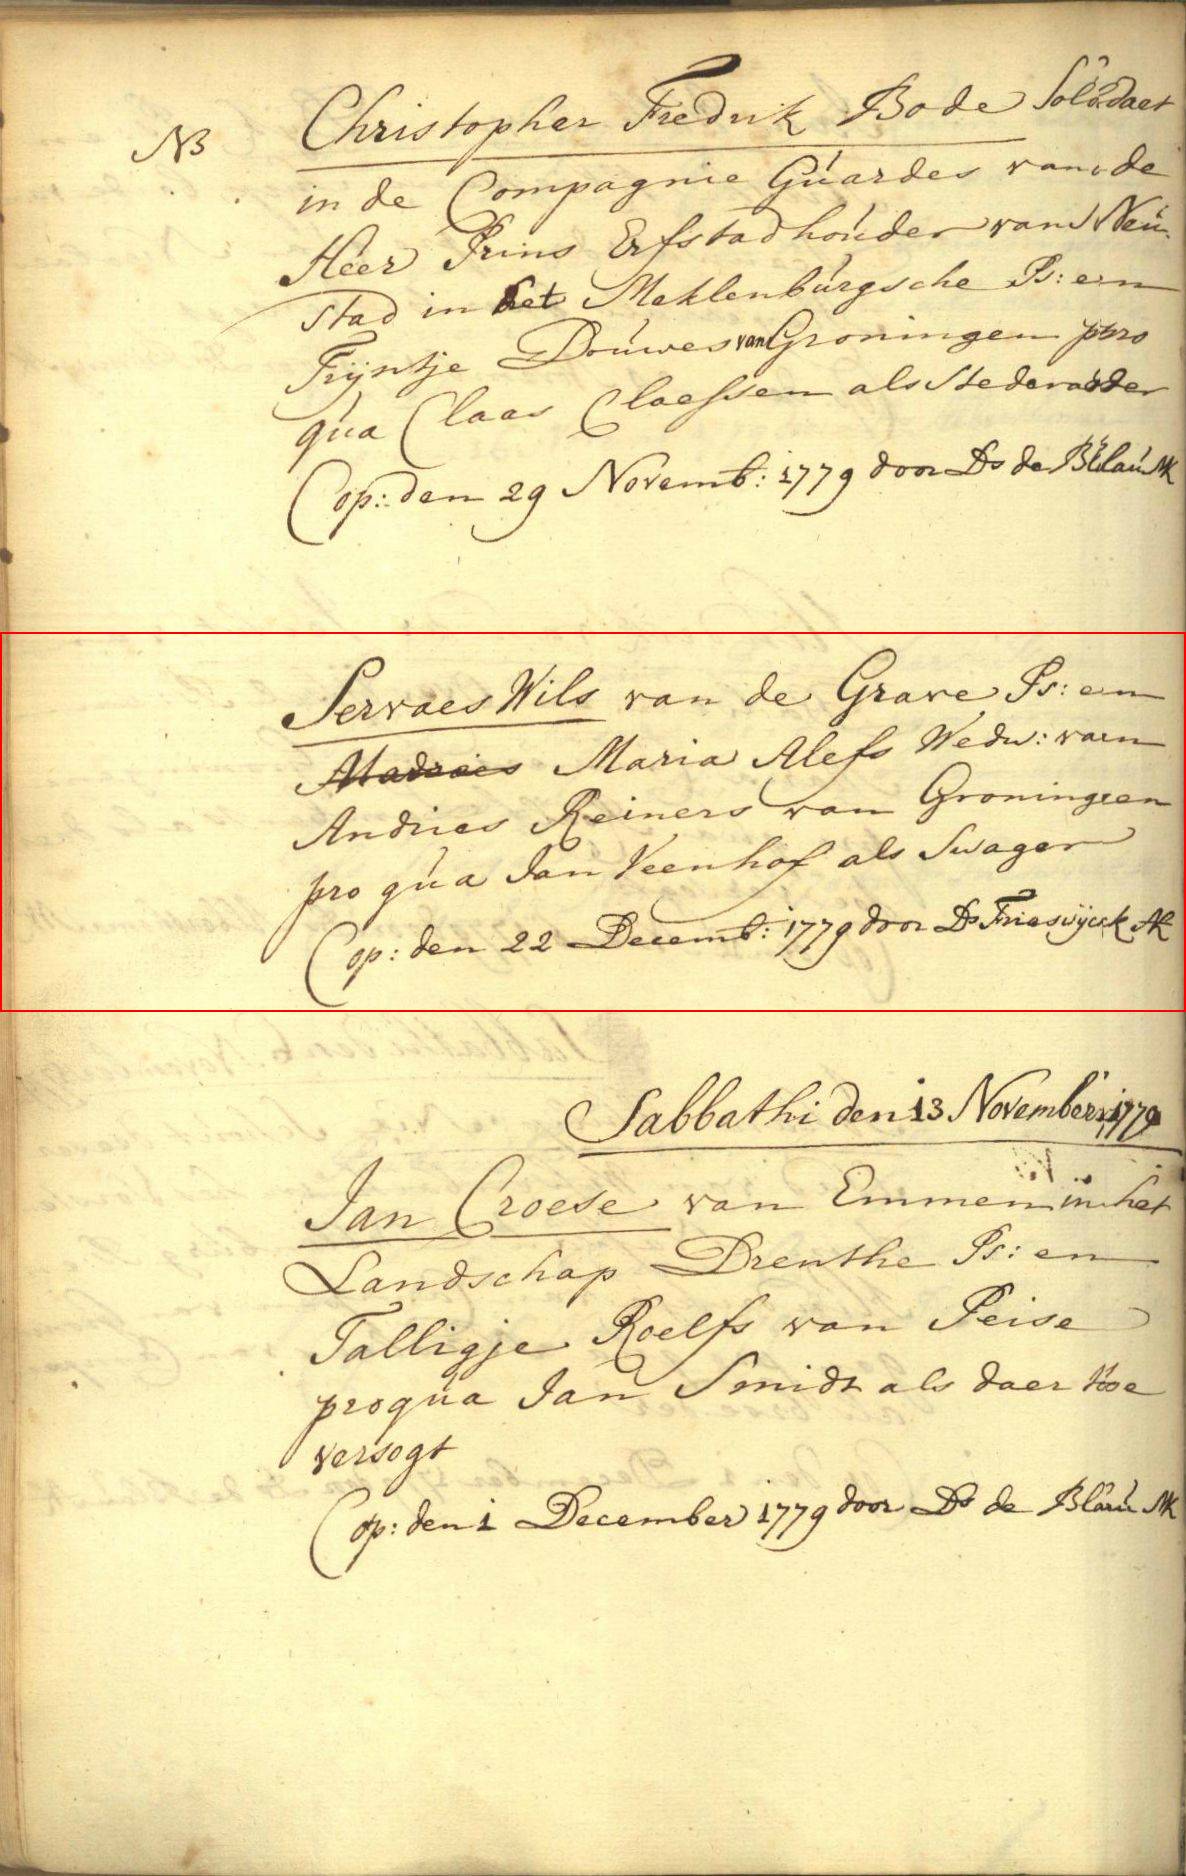 NB
Christopher Fredrik Bode Soldaet
in de Compagnie Guardes van de
Heer Prins Erfstadhouder van Neu
stad in het Meklenburgsche Ps: en
Trijntje Douwes van Groningen pro
qua Claas Claessen als Stedevader
Cop: den 29 Novemb: 1779 door Ds de Blau NK
Servaes Wils van de Grave Ps: en
Maria Alefs Wedw: van
Andries Reiners van Groningen
pro qua Jan Veenhof als Swager
Cop: den 22 Decemb: 1779 door Ds Frieswijck AK
Sabbathi den 13 November 1779
Jan Croese van Emmen in het
Landschap Drenthe Ps: en
Talligje Roelfs van Peise
pro qua Jan Smidt als daer toe
versogt
Cop: den 1 December 1779 door Ds de Blau NK